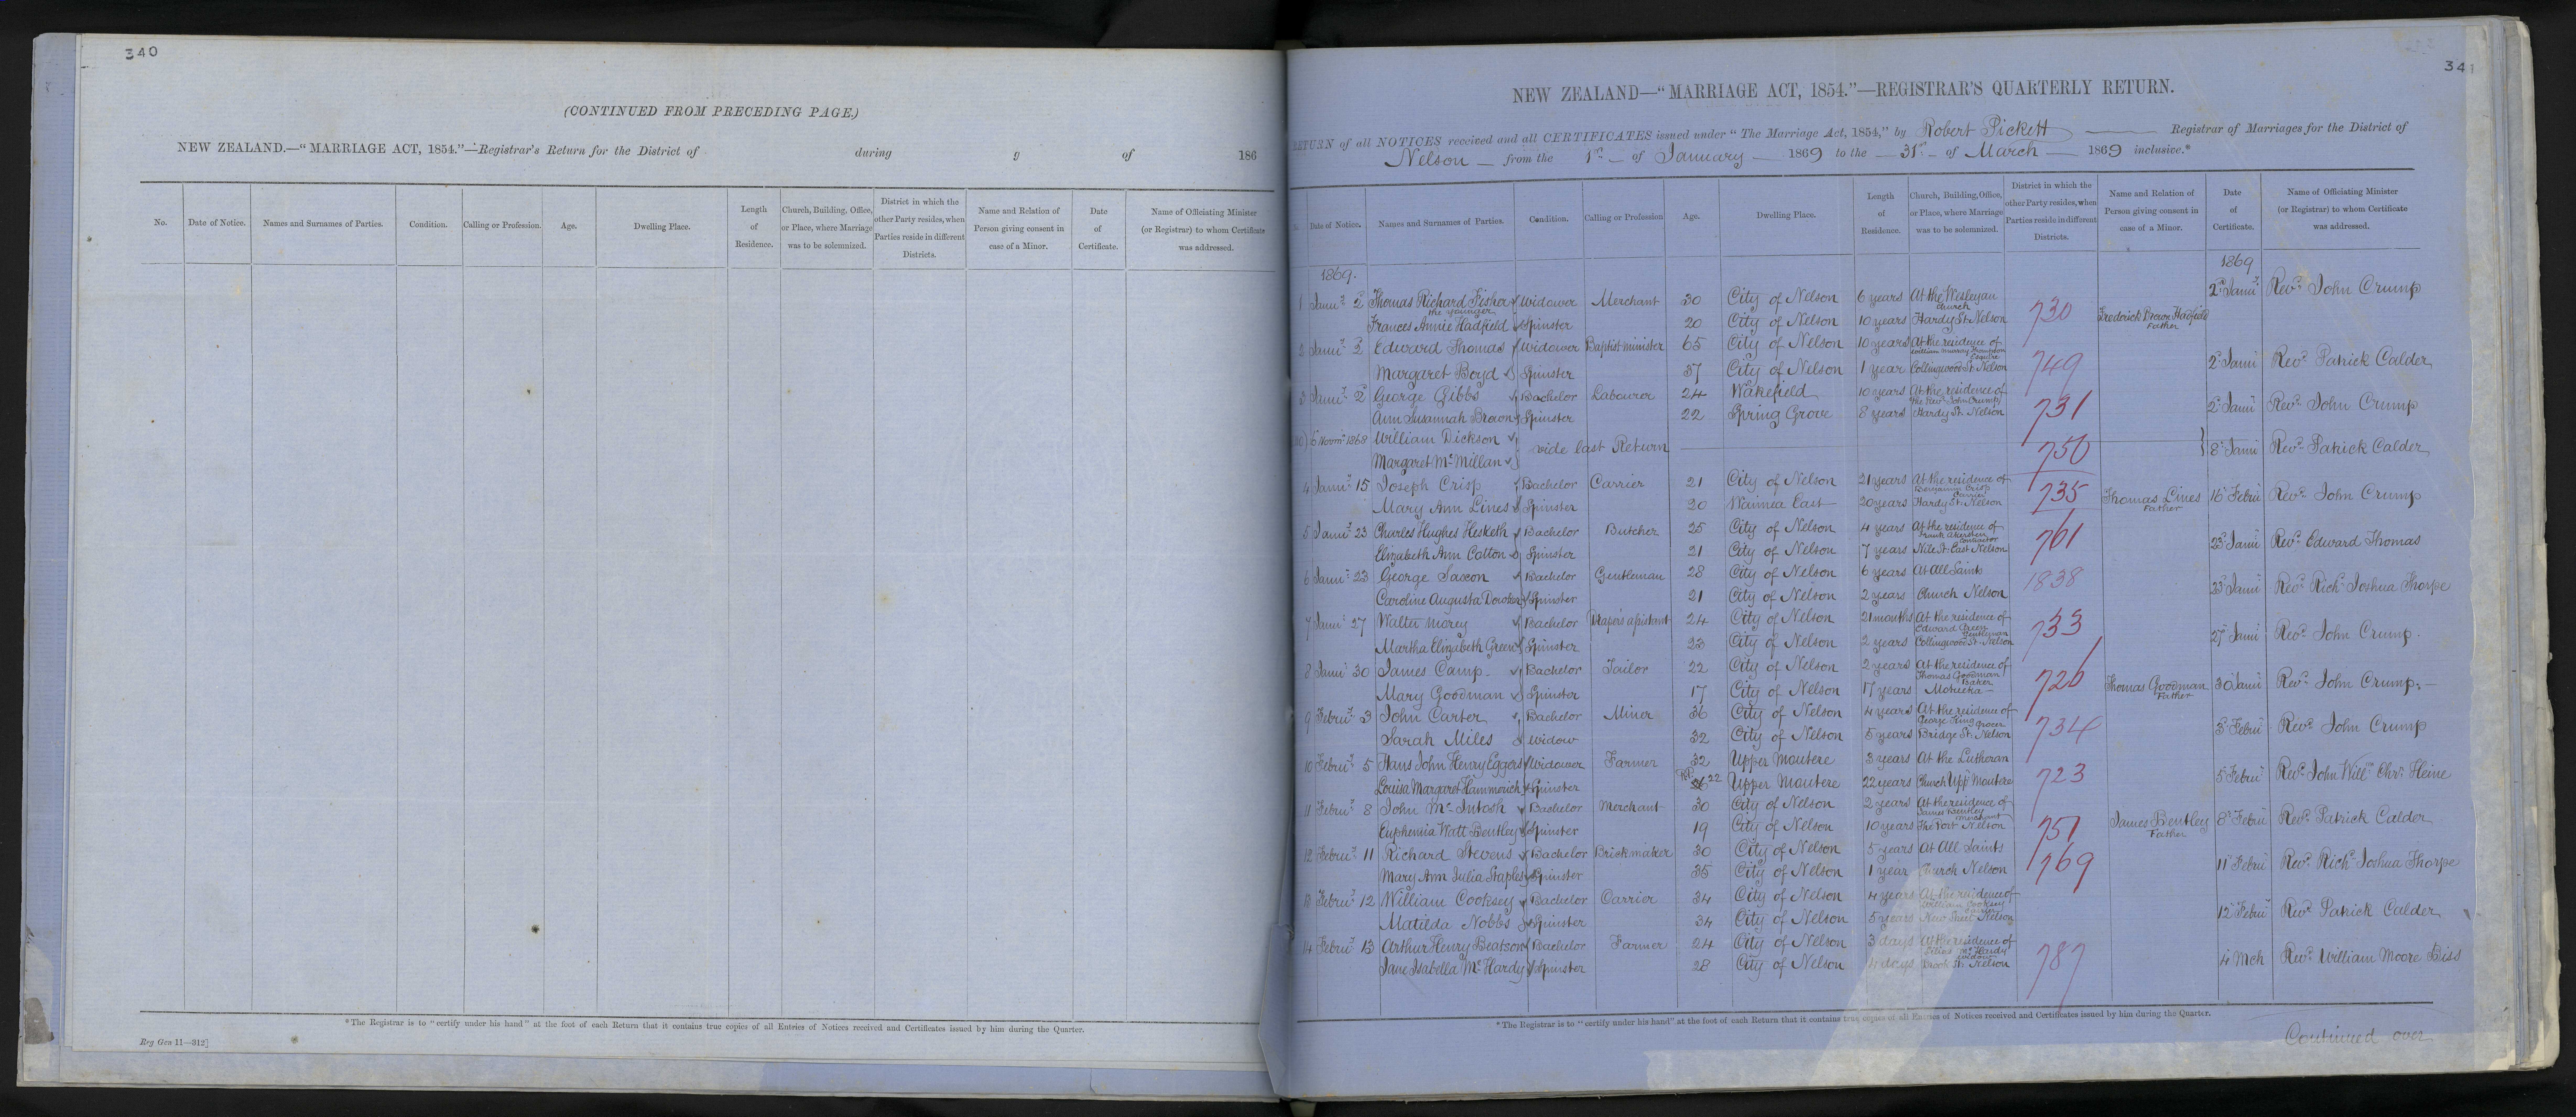 340
(CONTINUED FROM PRECEDING PAGE.)
NEW ZEALAND.—"MARRIAGE ACT, 1854."—Registrar's Return for the District of during of 186
No. Date of Notice. Names and Surnames of Parties. Condition. Calling or Profession. Age. Dwelling Place. Length of Residence. Church, Building, Office, or Place, where Marriage was to be solemnized. District in which the other Party resides, when Parties reside in different Districts. Name and Relation of Person giving consent in case of a Minor. Date of Certificate. Name of Officiating Minister (or Registrar) to whom Certificate was addressed.
*The Registrar is to "certify under his hand" at the foot of each Return that it contains true copies of all Entries of Notices received and Certificates issued by him during the Quarter.
Reg Gen 11—312]
341
NEW ZEALAND—"MARRIAGE ACT, 1854."—REGISTRAR'S QUARTERLY RETURN.
RETURN of all NOTICES received and all CERTIFICATES issued under "The Marriage Act, 1854," by Robert Pickett Registrar of Marriages for the District of
Nelson from the 1st of January 1869 to the 31st of March 1869 inclusive.*
Date of Notice. Names and Surnames of Parties. Condition. Calling or Profession Age. Dwelling Place. Length of Residence. Church, Building, Office, or Place, where Marriage was to be solemnized. District in which the other Party resides, when Parties reside in different Districts. Name and Relation of Person giving consent in case of a Minor. Date of Certificate. Name of Officiating Minister (or Registrar) to whom Certificate was addressed.
1869. 1869
1 Janu'y 2 Thomas Richard Fisher the younger Widower Merchant 30 City of Nelson 6 years At the Wesleyan church 2d Janu'y Revd John Crump
Frances Annie Hadfield Spinster 20 City of Nelson 10 years Hardy St Nelson 730 Frederick Brown Hadfield Father
2 Janu'y 2 Edward Thomas Widower Baptist minister 65 City of Nelson 10 years At the residence of William Murray Thompson Esquire
Margaret Boyd Spinster 37 City of Nelson 1 year Collingwood St Nelson 749 2d Janu'y Revd Patrick Calder
3 Janu'y 2 George Gibbs Bachelor Labourer 24 Wakefield 10 years At the residence of the Revd John Crump
Ann Susannah Brown Spinster 22 Spring Grove 8 years Hardy St Nelson 731 2d Janu'y Revd John Crump
6 Novr 1868 William Dickson vide last Return
Margaret McMillan 750 8 Janu'y Revd Patrick Calder
4 Janu'y 15 Joseph Crisp Bachelor Carrier 21 City of Nelson 21 years At the residence of Benjamin Crisp Carrier
Mary Ann Lines Spinster 20 Waimea East 20 years Hardy St Nelson 735 Thomas Lines Father 16 Febru'y Revd John Crump
5 Janu'y 23 Charles Hughes Hesketh Bachelor Butcher 25 City of Nelson 4 years At the residence of Frank Akersten Contractor
Elizabeth Ann Cotton Spinster 21 City of Nelson 7 years Nile St East Nelson 761 23 Janu'y Revd Edward Thomas
6 Janu'y 23 George Saxon Bachelor Gentleman 28 City of Nelson 6 years At All Saints
Caroline Augusta Spinster 21 City of Nelson 2 years Church Nelson 1838 23 Janu'y Revd Richd Joshua Thorpe
7 Janu'y 27 Walter Morey Bachelor Draper's assistant 24 City of Nelson 21 months At the residence of Edward Green Gentleman
Martha Elizabeth Green Spinster 23 City of Nelson 2 years Collingwood St Nelson 733 27 Janu'y Revd John Crump
8 Janu'y 30 James Camp Bachelor Tailor 22 City of Nelson 2 years At the residence of Thomas Goodman Baker
Mary Goodman Spinster 17 City of Nelson 17 years Motueka 726 Thomas Goodman Father 30 Janu'y Revd John Crump
9 Febru'y 3 John Carter Bachelor Miner 36 City of Nelson 4 years At the residence of George King grocer
Sarah Miles Widow 32 City of Nelson 5 years Bridge St Nelson 734 3 Febru'y Revd John Crump
10 Febru'y 5 Hans John Henry Eggers Widower Farmer 32 Upper Moutere 3 years At the Lutheran
Louisa Margaret Hammerich Spinster 22 Upper Moutere 22 years Church Upp Moutere 723 5 Febru'y Revd John Willm Chrn Heine
11 Febru'y 8 John McIntosh Bachelor Merchant 30 City of Nelson 2 years At the residence of James Bentley Merchant
Euphemia Watt Bentley Spinster 19 City of Nelson 10 years The Port Nelson 751 James Bentley Father 8 Febru'y Revd Patrick Calder
12 Febru'y 11 Richard Stevens Bachelor Brickmaker 30 City of Nelson 5 years At All Saints
Mary Ann Julia Staples Spinster 35 City of Nelson 1 year Church Nelson 769 11 Febru'y Revd Richd Joshua Thorpe
13 Febru'y 12 William Cooksey Bachelor Carrier 34 City of Nelson 4 years At the residence of William Cooksey Carrier
Matilda Nobbs Spinster 34 City of Nelson 5 years New Street Nelson 12 Febru'y Revd Patrick Calder
14 Febru'y 13 Arthur Henry Beatson Bachelor Farmer 24 City of Nelson 3 days At the residence of McHardy widow
Jane Isabella McHardy Spinster 28 City of Nelson 4 days Brook St Nelson 787 4 Mch Revd William Moore Biss
*The Registrar is to "certify under his hand" at the foot of each Return that it contains true copies of all Entries of Notices received and Certificates issued by him during the Quarter.
Continued over